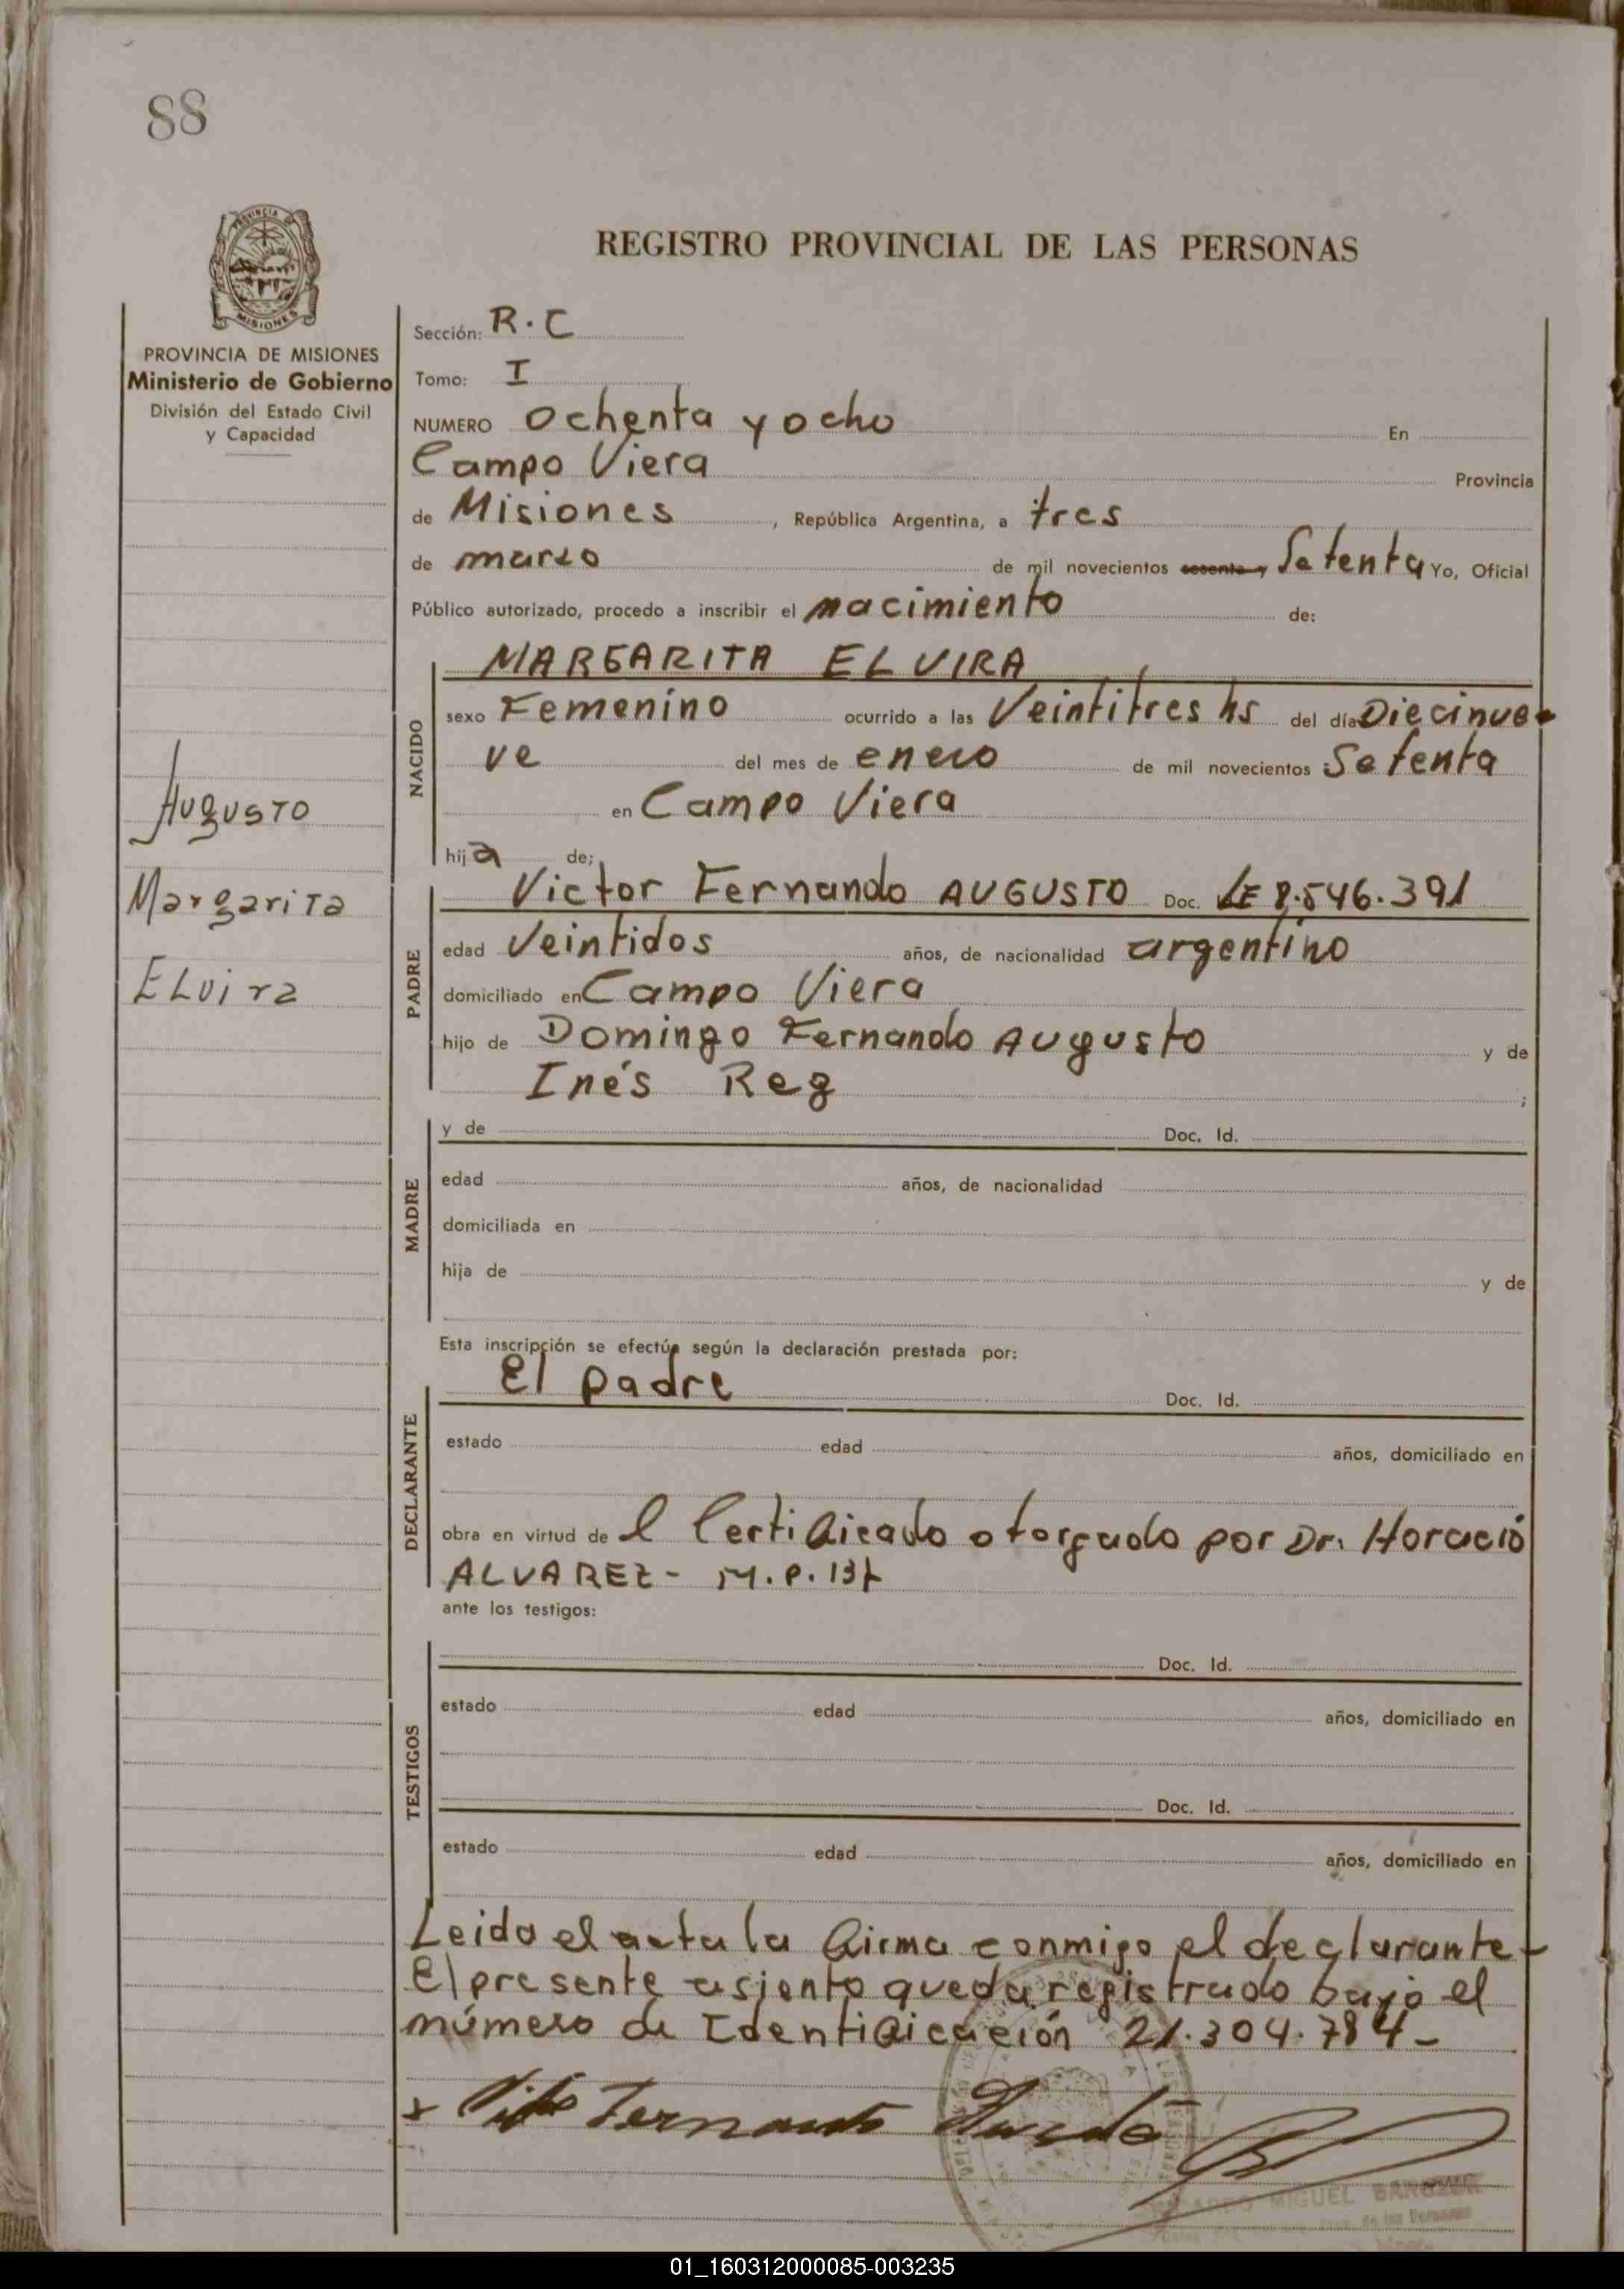 88
REGISTRO PROVINCIAL DE LAS PERSONAS
PROVINCIA DE MISIONES
Ministerio de Gobierno
División del Estado Civil
y Capacidad
Sección: R. C
Tomo: I
NUMERO Ochenta y ocho En
Campo Viera Provincia
de Misiones, República Argentina, a tres
de marzo de mil novecientos sesenta y Setenta Yo, Oficial
Público autorizado, procedo a inscribir el nacimiento de:
NACIDO
MARGARITA ELVIRA
sexo Femenino ocurrido a las Veintitres hs del día Diecinue-
ve del mes de enero de mil novecientos Setenta
en Campo Viera
hija de:
Augusto
Margarita
Elvira
PADRE
Victor Fernando AUGUSTO Doc. LE 8.546.391
edad Veintidos años, de nacionalidad argentino
domiciliado en Campo Viera
hijo de Domingo Fernando Augusto y de
Inés Reg ;
MADRE
y de Doc. Id.
edad años, de nacionalidad
domiciliada en
hija de y de
Esta inscripción se efectúa según la declaración prestada por:
DECLARANTE
El padre Doc. Id.
estado edad años, domiciliado en
obra en virtud de l Certificado otorgado por Dr. Horacio
ALVAREZ - M.P.
ante los testigos:
TESTIGOS
Doc. Id.
estado edad años, domiciliado en
Doc. Id.
estado edad años, domiciliado en
Leida el acta la firma conmigo el declarante-
El presente asiento queda registrado bajo el
número de Identificación 21.304.784-
Fernando
MIGUEL
01_160312000085-003235